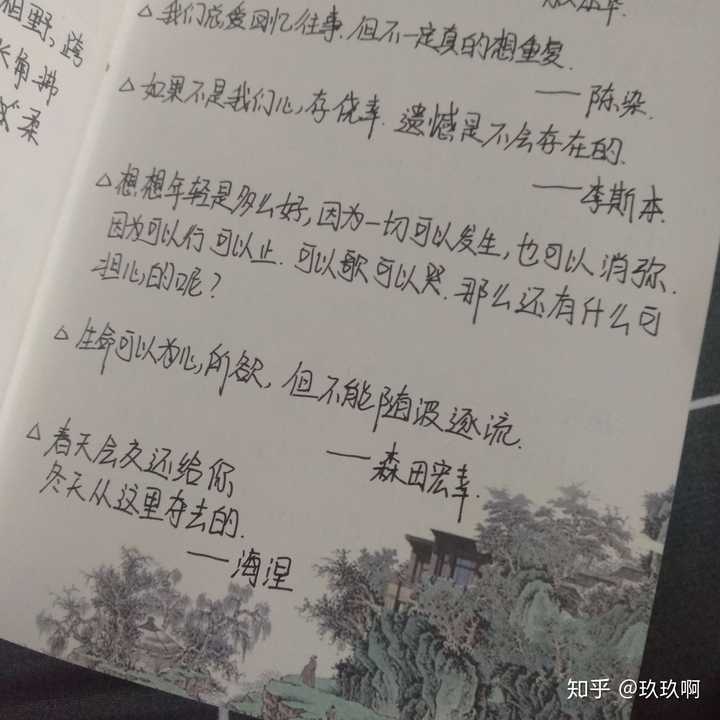 相野，跨
长角拂
或柔
△我们总爱回忆往事.但不一定真的想重复.
——陈染.
△如果不是我们心存侥幸.遗憾是不会存在的.
——李斯本.
△想想年轻是多么好，因为一切可以发生，也可以消弥.
因为可以行可以止.可以歌可以哭.那么还有什么可
担心的呢？
△生命可以为心所欲，但不能随波逐流.
——森田宏幸.
△春天会交还给你
冬天从这里夺去的.
——海涅
知乎 @玖玖啊